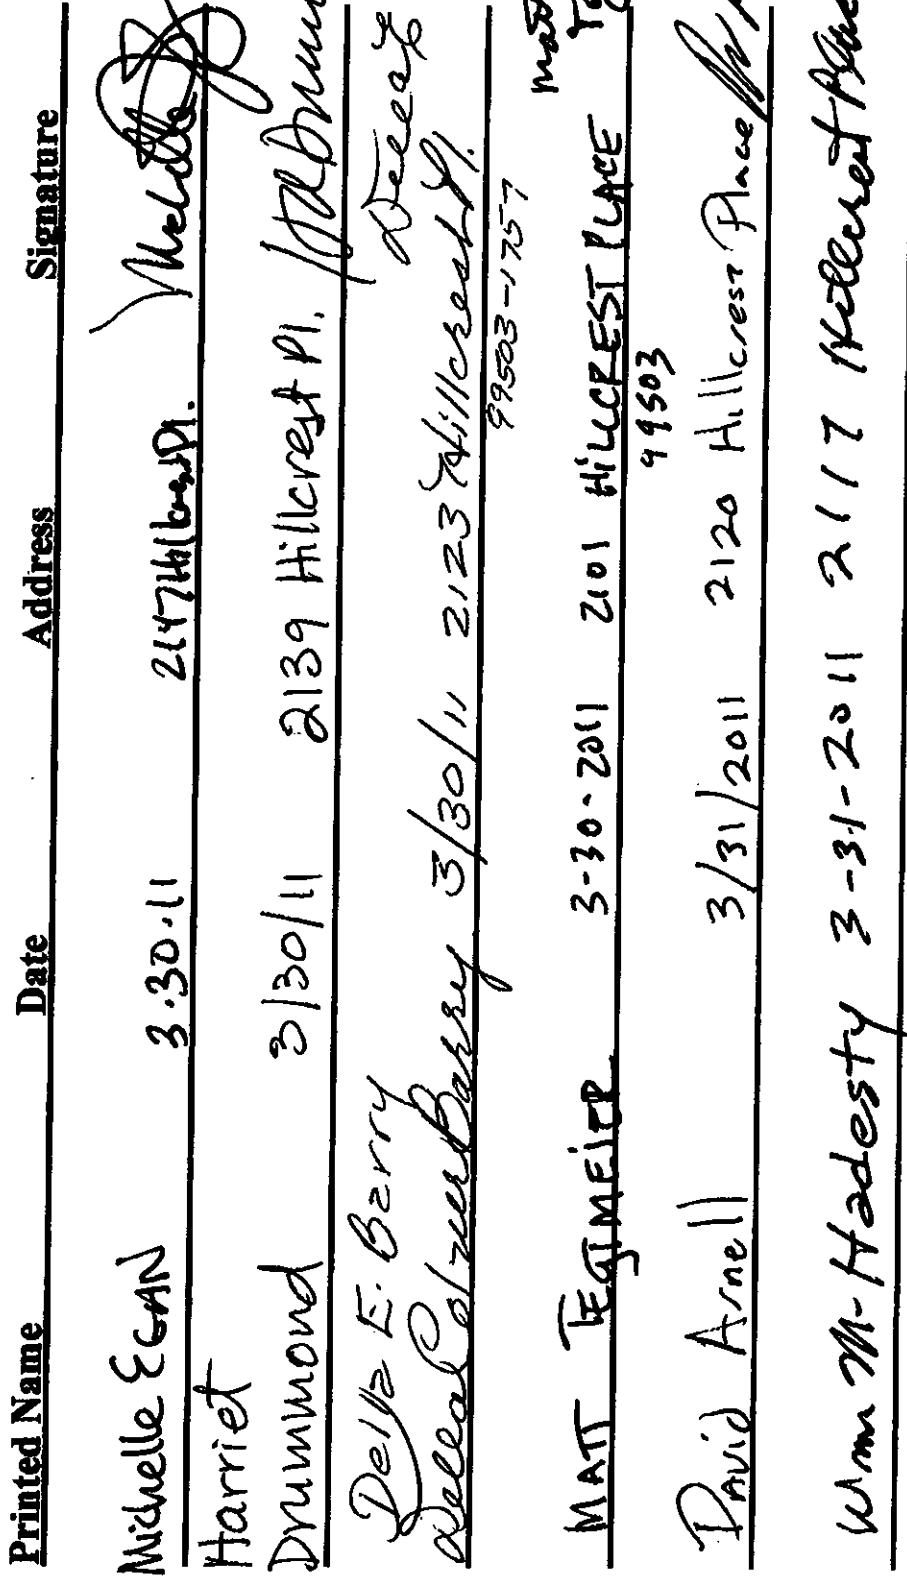 Printed Name Date Address Signature
Michelle EGAN 3.30.11 2147 Hillcrest Pl. Michelle
Harriet
Drummond 3/30/11 2139 Hillcrest Pl.
Della E. Barry
Barry 3/30/11 2123 Hillcrest Pl.
99503-1757
MATT TEGTMEIER 3-30-2011 2101 HILLCREST PLACE
99503
DAVID Arnell 3/31/2011 2120 Hillcrest Place
Wm M. Hadesty 3-31-2011 2117 Hillcrest Place